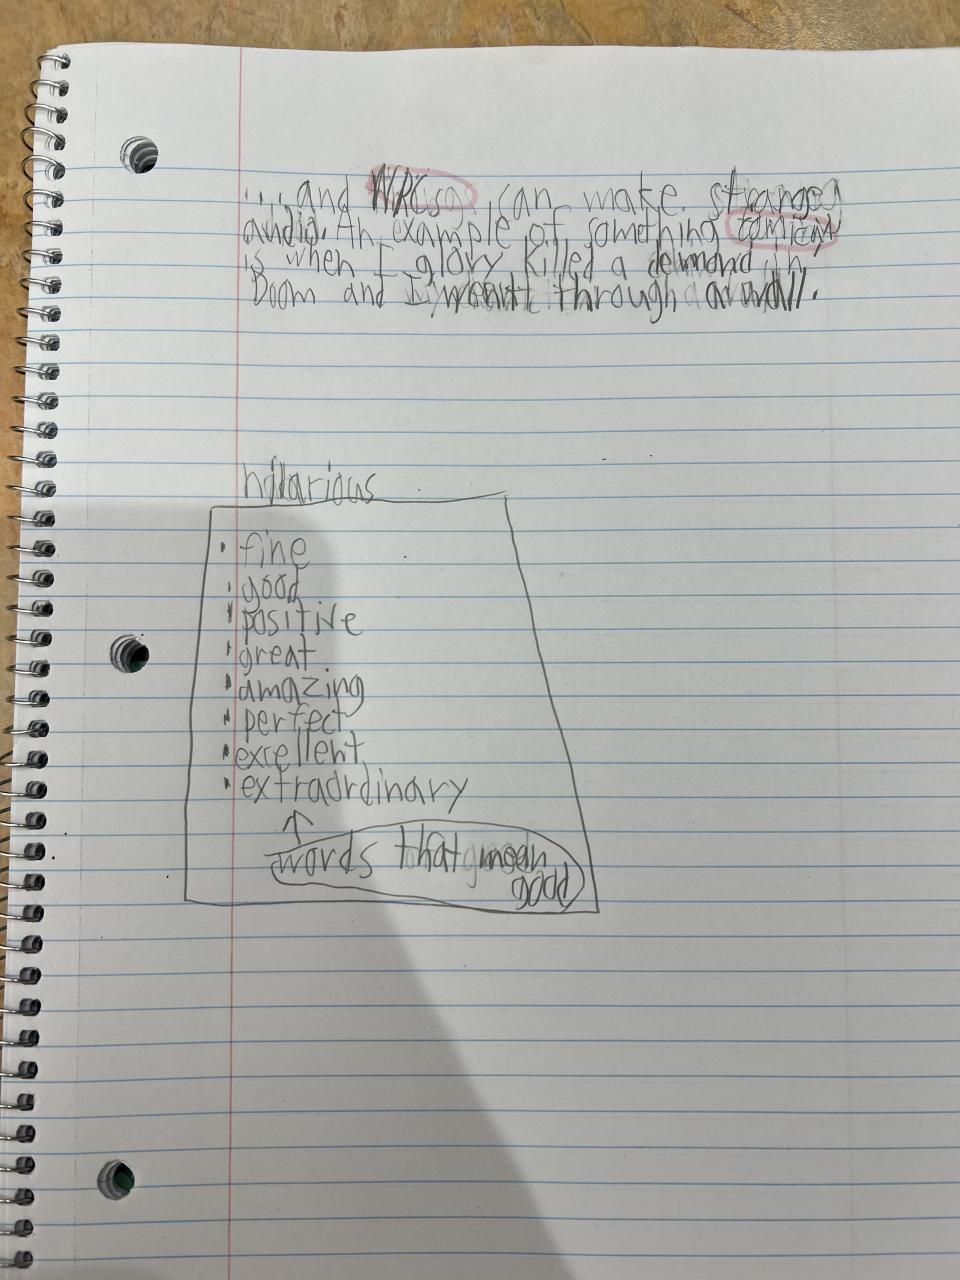 ....and can make strange
audio. An example of something
is when I glory killed a demon in
Doom and I went through a wall.
hilarious
• fine
• good
• positive
• great
• amazing
• perfect
• excellent
• extraordinary
words that mean
good